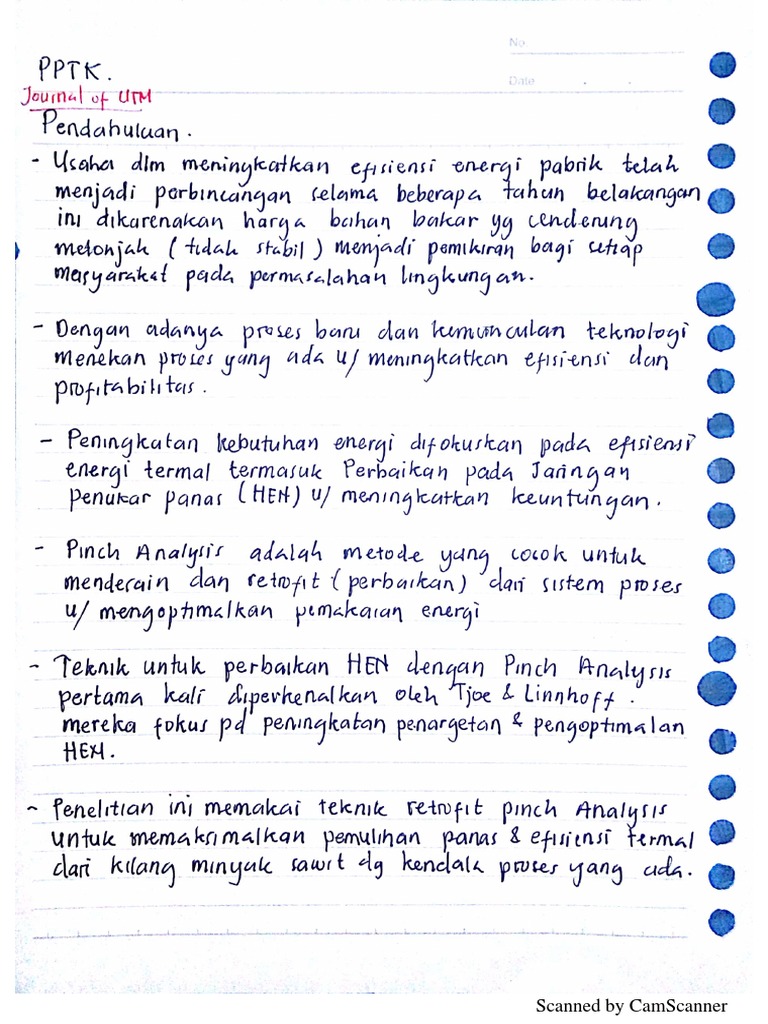 No.
Date
PPTK.
Journal of UTM
Pendahuluan.
- Usaha dlm meningkatkan efisiensi energi pabrik telah
menjadi perbincangan selama beberapa tahun belakangan
ini dikarenakan harga bahan bakar yg cenderung
melonjak (tidak stabil) menjadi pemikiran bagi setiap
masyarakat pada permasalahan lingkungan.
- Dengan adanya proses baru dan kemunculan teknologi
menekan proses yang ada u/ meningkatkan efisiensi dan
profitabilitas.
- Peningkatan kebutuhan energi difokuskan pada efisiensi
energi termal termasuk Perbaikan pada Jaringan
penukar panas (HEN) u/ meningkatkan keuntungan.
- Pinch Analysis adalah metode yang cocok untuk
mendesain dan retrofit (perbaikan) dari sistem proses
u/ mengoptimalkan pemakaian energi
- Teknik untuk perbaikan HEN dengan Pinch Analysis
pertama kali diperkenalkan oleh Tjoe & Linnhoff.
mereka fokus pd peningkatan penargetan & pengoptimalan
HEN.
- Penelitian ini memakai teknik retrofit pinch Analysis
untuk memaksimalkan pemulihan panas & efisiensi termal
dari kilang minyak sawit dg kendala proses yang ada.
Scanned by CamScanner